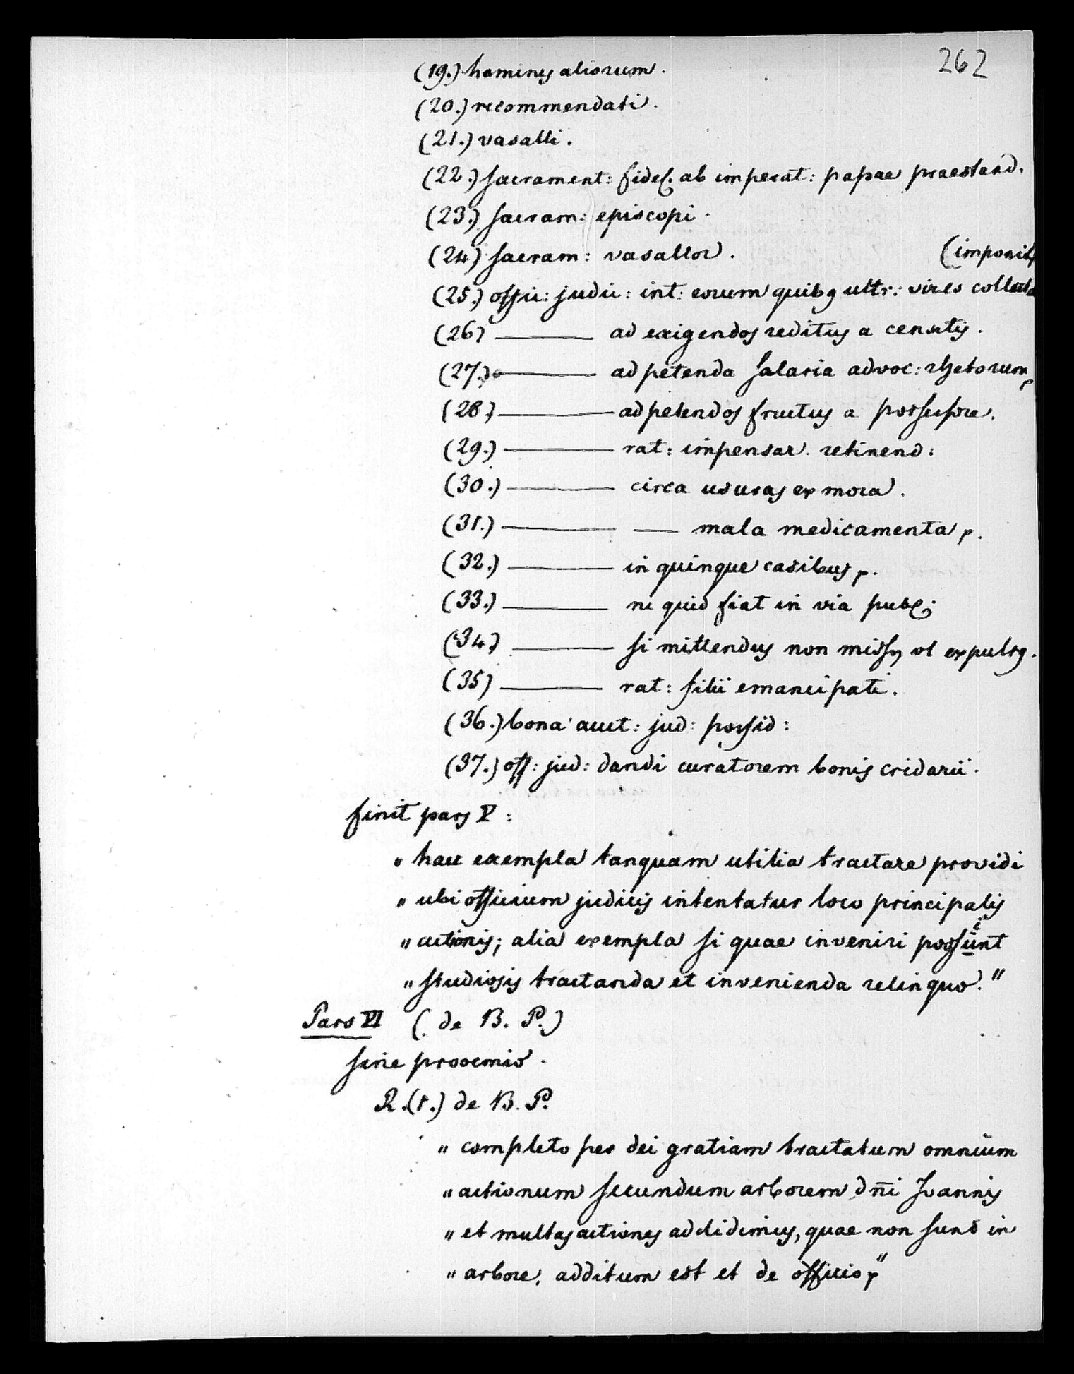 262
(19.) homines aliorum.
(20.) recommendati.
(21.) vasalli.
(22.) sacrament: fidel. ab imperat: papae praestand.
(23.) sacram: episcopi.
(24) sacram: vasallor.
(imponit
(25.) offic: judic: int: eorum quibq ultr: vires collecta
(26) ——— ad exigendos reditus a censitis.
(27.) ——— ad petenda salaria advoc: rhetorum
(28.) ——— ad petendos fructus a possessore.
(29.) ——— rat: impensar. retinend:
(30.) ——— circa usuras ex mora.
(31.) ——— — mala medicamenta p.
(32.) ——— in quinque casibus p.
(33.) ——— ne quid fiat in via publ:
(34) ——— si mittendus non missq vl expulsq.
(35) ——— rat: filii emancipati.
(36.) bona auct: jud: possid:
(37.) off: jud: dandi curatorem bonis cridarii.
finit pars V:
„ haec exempla tanquam utilia tractare providi
„ ubi officium judicis intentatur loco principalis
„ actionis; alia exempla si quae inveniri possunt
„ studiosis tractanda et invenienda relinquo."
Pars VI (de B. P.)
sine prooemio.
R.(1.) de B. P.
„ completo per dei gratiam tractatum omnium
„ actionum secundum arborem dni Joannis
„ et multas actiones addidimus, quae non sunt in
„ arbore, additum est et de officio p"